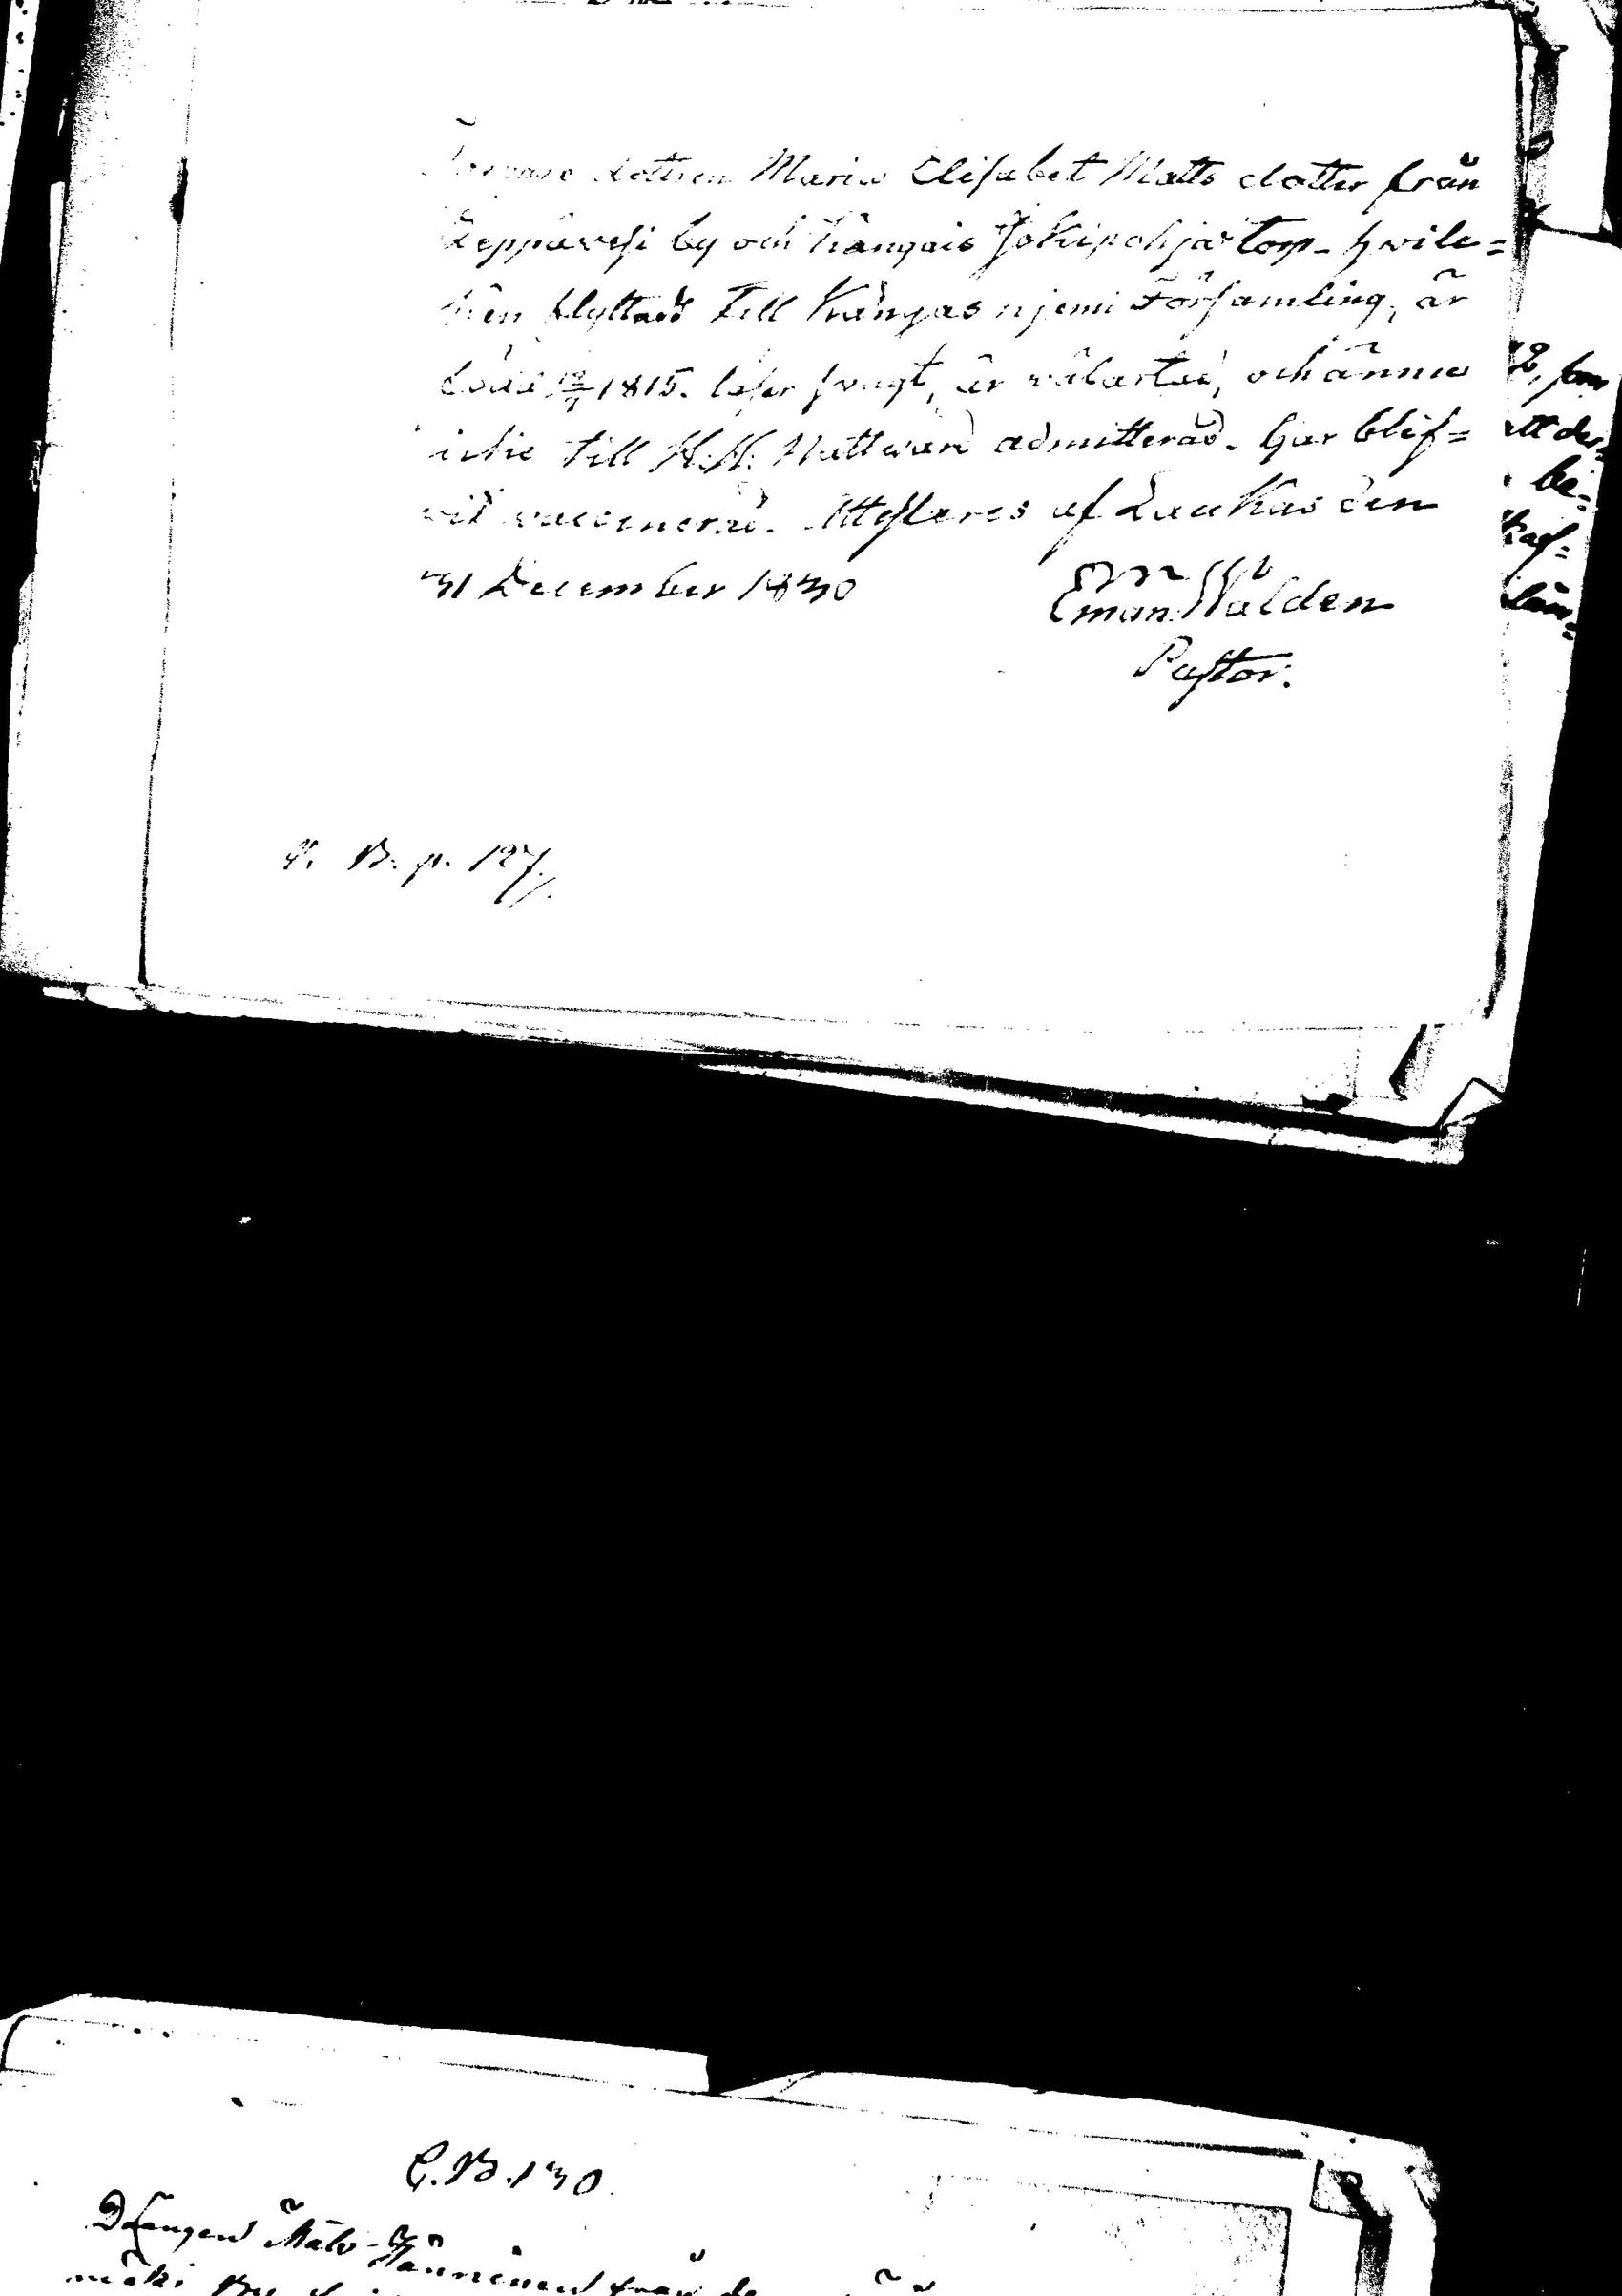 dottren Maria Elisabet Matts dotter från
Leppävesi by och Kangais Jokipohja torp - hvil-
ken flyttad till Kangasnjemi Församling, är
född 1815. läser svagt, är välartad, och ännu
icke till H. H. Nattvard admitterad. Har blif=
vit vaccinerad. Attesteras af Laukas den
31 December 1830
Eman: Walden
Pastor.
B. p. 127.
be=
C.B. 130
Drengen Mats Hänninen från
mäki By